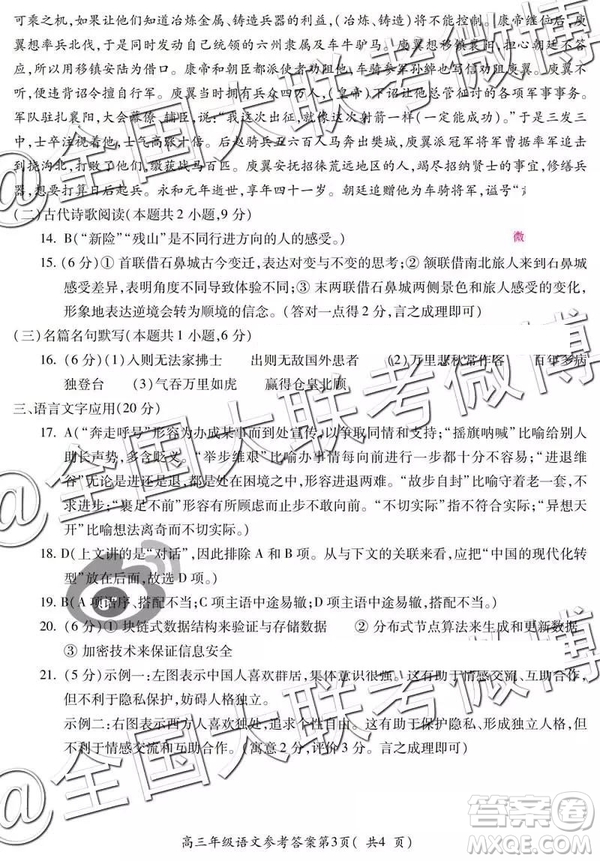 可乘之机,如果让他们知道冶炼金属、铸造兵器的利益,(冶炼、铸造)将不能控制。康帝继位后,庾
翼想率兵北伐,于是下令大量征发他所统领的六州隶属及车牛驴马。庾翼想移镇襄阳,担心朝廷不答
应,所以用移镇安陆为借口。康帝和朝臣都派使者劝阻他,车骑参军孙绰也写信劝阻庾翼。庾翼不听,
背着诏令擅自行军。庾翼有兵众四万人,(皇帝)下诏让他总管征讨及军中的各项军事事务。
军队驻扎襄阳,大会幕僚、辅臣,他说:“我这次出征,就像这次射箭一样。”于是三发三
中,士卒注视着他,士气高涨十倍。后赵骑兵五六百人马出樊城,庾翼派冠军将军
打败他们,缴获战马百匹。庾翼安抚招徕荒远地区的人民,务尽招纳贤士的事宜,修缮兵
器,耕种田地积存谷物。永和元年逝世,享年四十一岁。朝廷追赠他为车骑将军,谥号“
(二)古代诗歌阅读(本题共2小题,9分)
14. B(“新险”“残山”是不同行进方向的人的感受。)
微
15. (6分)① 首联借石鼻城古今变迁,表达对变与不变的思考;② 颔联借南北旅人来到石鼻城
感受差异,表达不同导致体验不同;③ 末两联借石鼻城两侧景色和旅人感受的变化,
形象地表达逆境会转为顺境的信念。(答对一点得2分,言之成理即可)
(三)名篇名句默写(本题共1小题,6分)
16. (6分)(1)入则无法家拂士 出则无敌国外患者 (2)万里悲秋常作客 百年多病
独登台 (3)气吞万里如虎 赢得仓皇北顾
三、语言文字应用(20分)
17. A(“奔走呼号”形容为办成某事而到处宣传,以争取同情和支持;“摇旗呐喊”比喻给别人
助长声势,多含贬义。“举步维艰”比喻办事情每向前进行一步都十分不容易;“进退维
谷”无论是进还是退,都是处在困境之中。“抱残守缺”比喻由于守着老一套,不
求进步;“裹足不前”形容有所顾虑而止步不敢向前。“不切实际”指不符合实际;“异想天
开”比喻想法离奇而不切实际。)
18. D(上文讲的是“对话”,因此排除A和B项。从与下文的关联来看,应把“中国的现代化转
型”放在后面,故选D项。)
19. B(A项语序、搭配不当;C项主语中途易辙;D项主语中途易辙、搭配不当。)
20. (6分)① 块链式数据结构来验证与存储数据 ② 分布式节点算法来生成和更新数据
③ 加密技术来保证信息安全
21. (5分)示例一:左图表示中国人喜欢群居,集体意识很强。这有助于情感交流互助合作,
但不利于隐私保护,妨碍个性张扬和独立人格。
示例二:右图表示西方人喜欢独处,边界意识明确。这有助于保护隐私、形成独立人格,但
不利于情感交流和互助合作。(寓意2分,评价3分。言之成理即可)
高三年级语文参考答案第3页( 共4 页)
@全国大联考微博
@全国大联考微博
@全国大联考微博